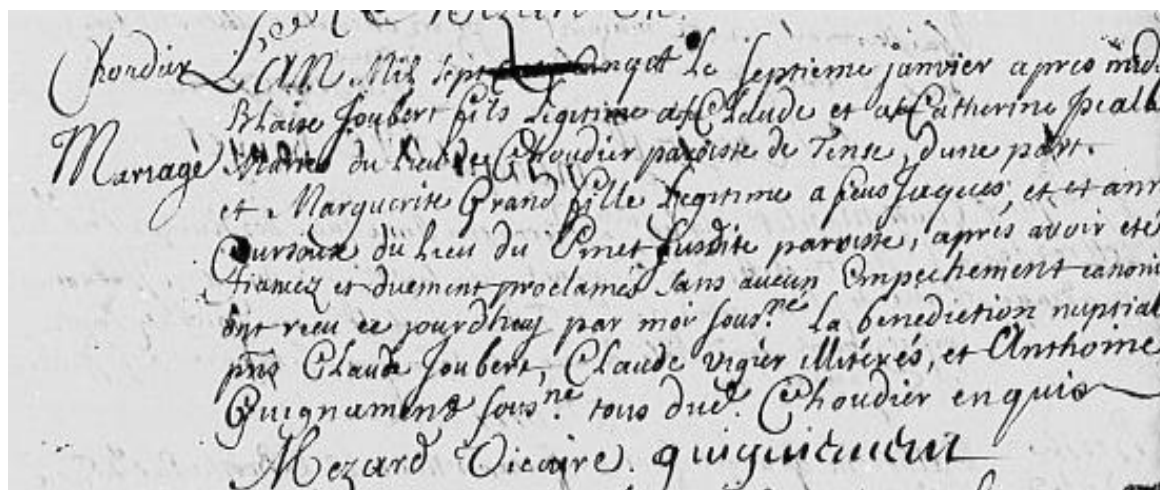 Choudier L'AN Mil Sept le Septieme janvier apres midi
Blaise Joubert fils Legitime a Claude et a Catherine
Mariage du Lieu de Choudier paroisse de Tense, dune part.
et Marguerite Grand fille Legitime a feus Jaques, et et
du Lieu du Pinet susdite paroisse, aprés avoir eté
fiancez et duement proclamés sans aucun Empechement canoni
ont receu ce jourdhuy par moi sous.né la benediction nuptial
pnts Claude Joubert, Claude vigier illiterés, et Anthoine
Guignamend sous.né tous dud. Choudier enquis
Mezard Vicaire.